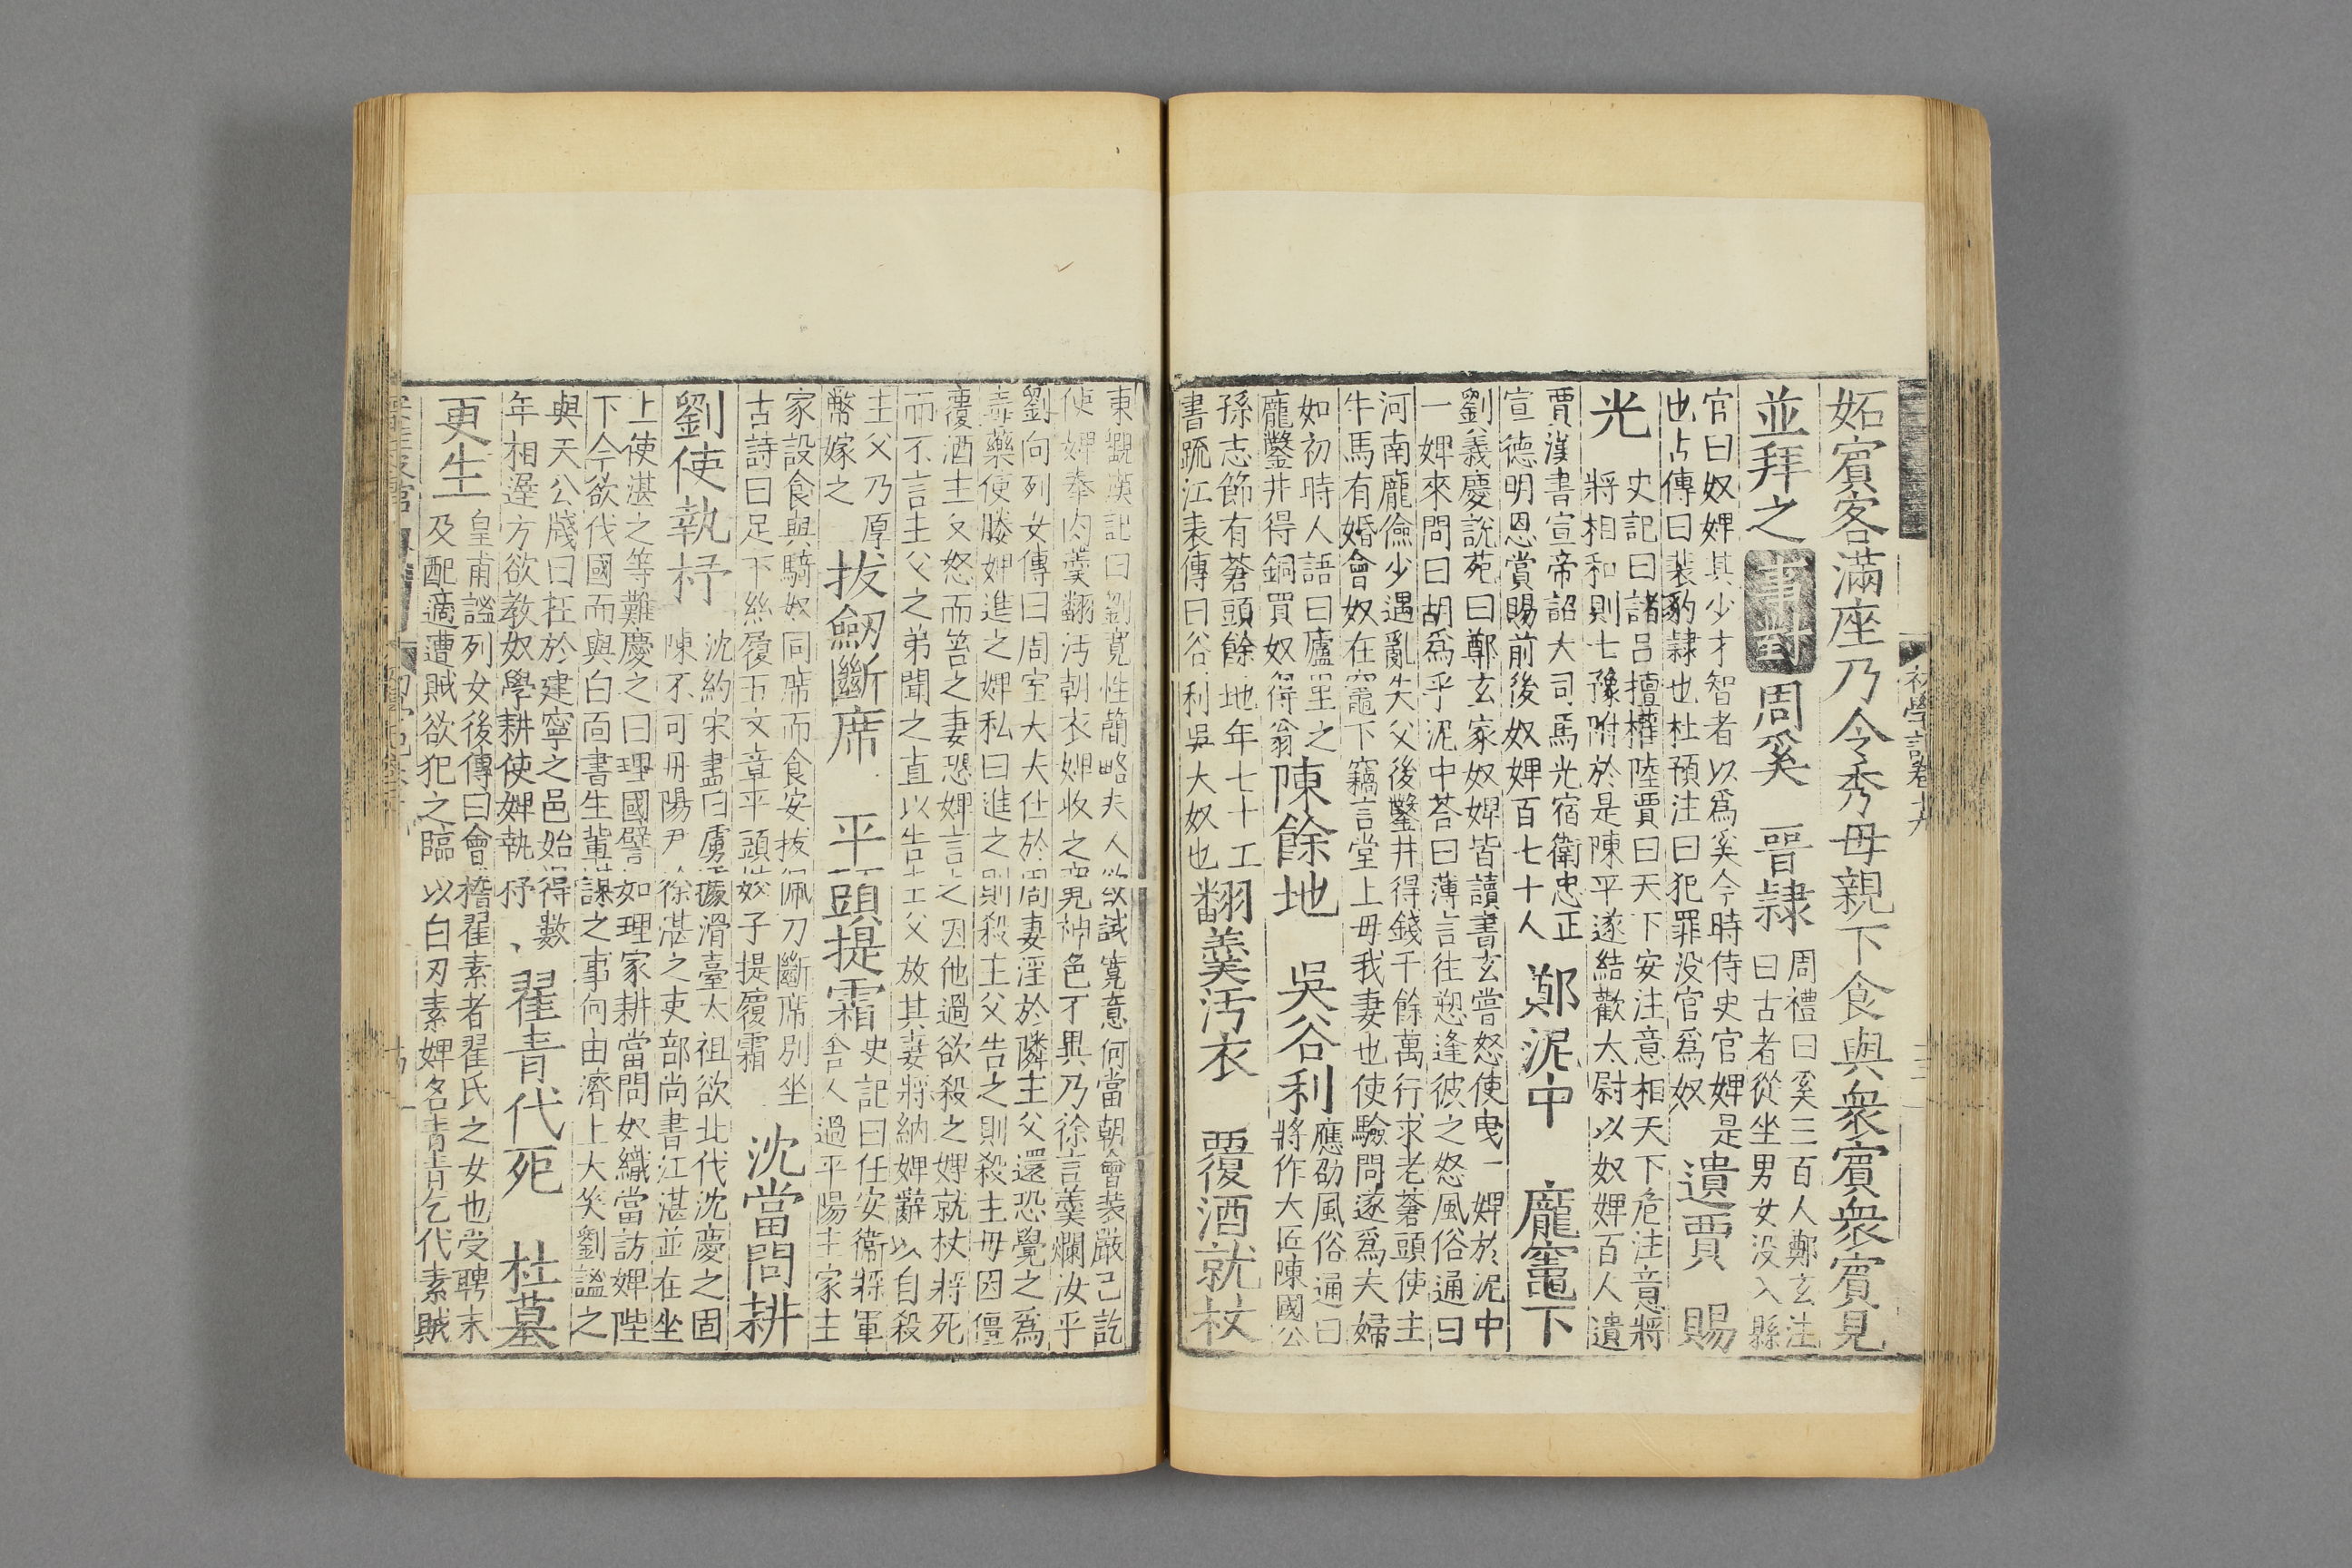 妬賓客滿座乃令秀母親下食與衆賓衆賓見
並拜之
事對
周奚 晉隸
周禮曰奚三百人鄭玄注
曰古者從坐男女没入縣
官曰奴婢其少才智者以爲奚今時侍史官婢是
也占傳曰裴豹隷也杜預注曰犯罪没官爲奴
遺賈 賜
光
史記曰諸吕擅權陸賈曰天下安注意相天下危注意將
將相和則士豫附於是陳平遂結歡太尉以奴婢百人遺
賈漢書宣帝詔大司馬光宿衛忠正
宣德明恩賞賜前後奴婢百七十人
鄭泥中 龐竈下
劉義慶説苑曰鄭玄家奴婢皆讀書玄嘗怒使曳一婢於泥中
一婢來問曰胡爲乎泥中荅曰薄言往愬逢彼之怒風俗通曰
河南龐儉少遇亂失父後鑿井得錢千餘萬行求老蒼頭使主
牛馬有婚會奴在竈下竊言堂上母我妻也使驗問遂爲夫婦
如初時人語曰廬里之
龐鑿井得銅買奴得翁
陳餘地 吳谷利
應劭風俗通曰
將作大匠陳國公
孫志節有蒼頭餘地年七十工
書疏江表傳曰谷利吳大奴也
翻羹汚衣 覆酒就杖
東觀漢記曰劉寛性簡略夫人欲試寛意伺當朝會裝嚴已訖
使婢奉肉羹翻汚朝衣婢收之寛神色不異乃徐言羹爛汝乎
劉向列女傳曰周室大夫仕於周妻淫於隣主父還恐覺之爲
毒藥使媵婢進之婢私曰進之則殺主父告之則殺主母因僵
覆酒主父怒而笞之妻恐婢言之因他過欲殺之婢就杖將死
而不言主父之弟聞之直以告主父放其妻將納婢辭以自殺
主父乃厚
幣嫁之
拔劒斷席 平頭提霜
史記曰任安衞將軍
舍人過平陽主家主
家設食與騎奴同席而食安拔佩刀斷席别坐
古詩曰足下絲履五文章平頭奴子提履霜
沈當問耕
劉使執杼
沈約宋書曰虜據滑臺太祖欲北代沈慶之固
陳不可丹陽尹徐湛之吏部尚書江湛並在坐
上使湛之等難慶之曰理國譬如理家耕當問奴織當訪婢陛
下今欲伐國而與白面書生輩謀之事何由濟上大笑劉謐之
與天公牋曰枉於建寧之邑始得數
年相遲方欲教奴學耕使婢執杼
翟青代死 杜墓
更生
皇甫謐列女後傳曰會稽翟素者翟氏之女也受聘未
及配適遭賊欲犯之臨以白刃素婢名青青乞代素賊
初學記卷十九